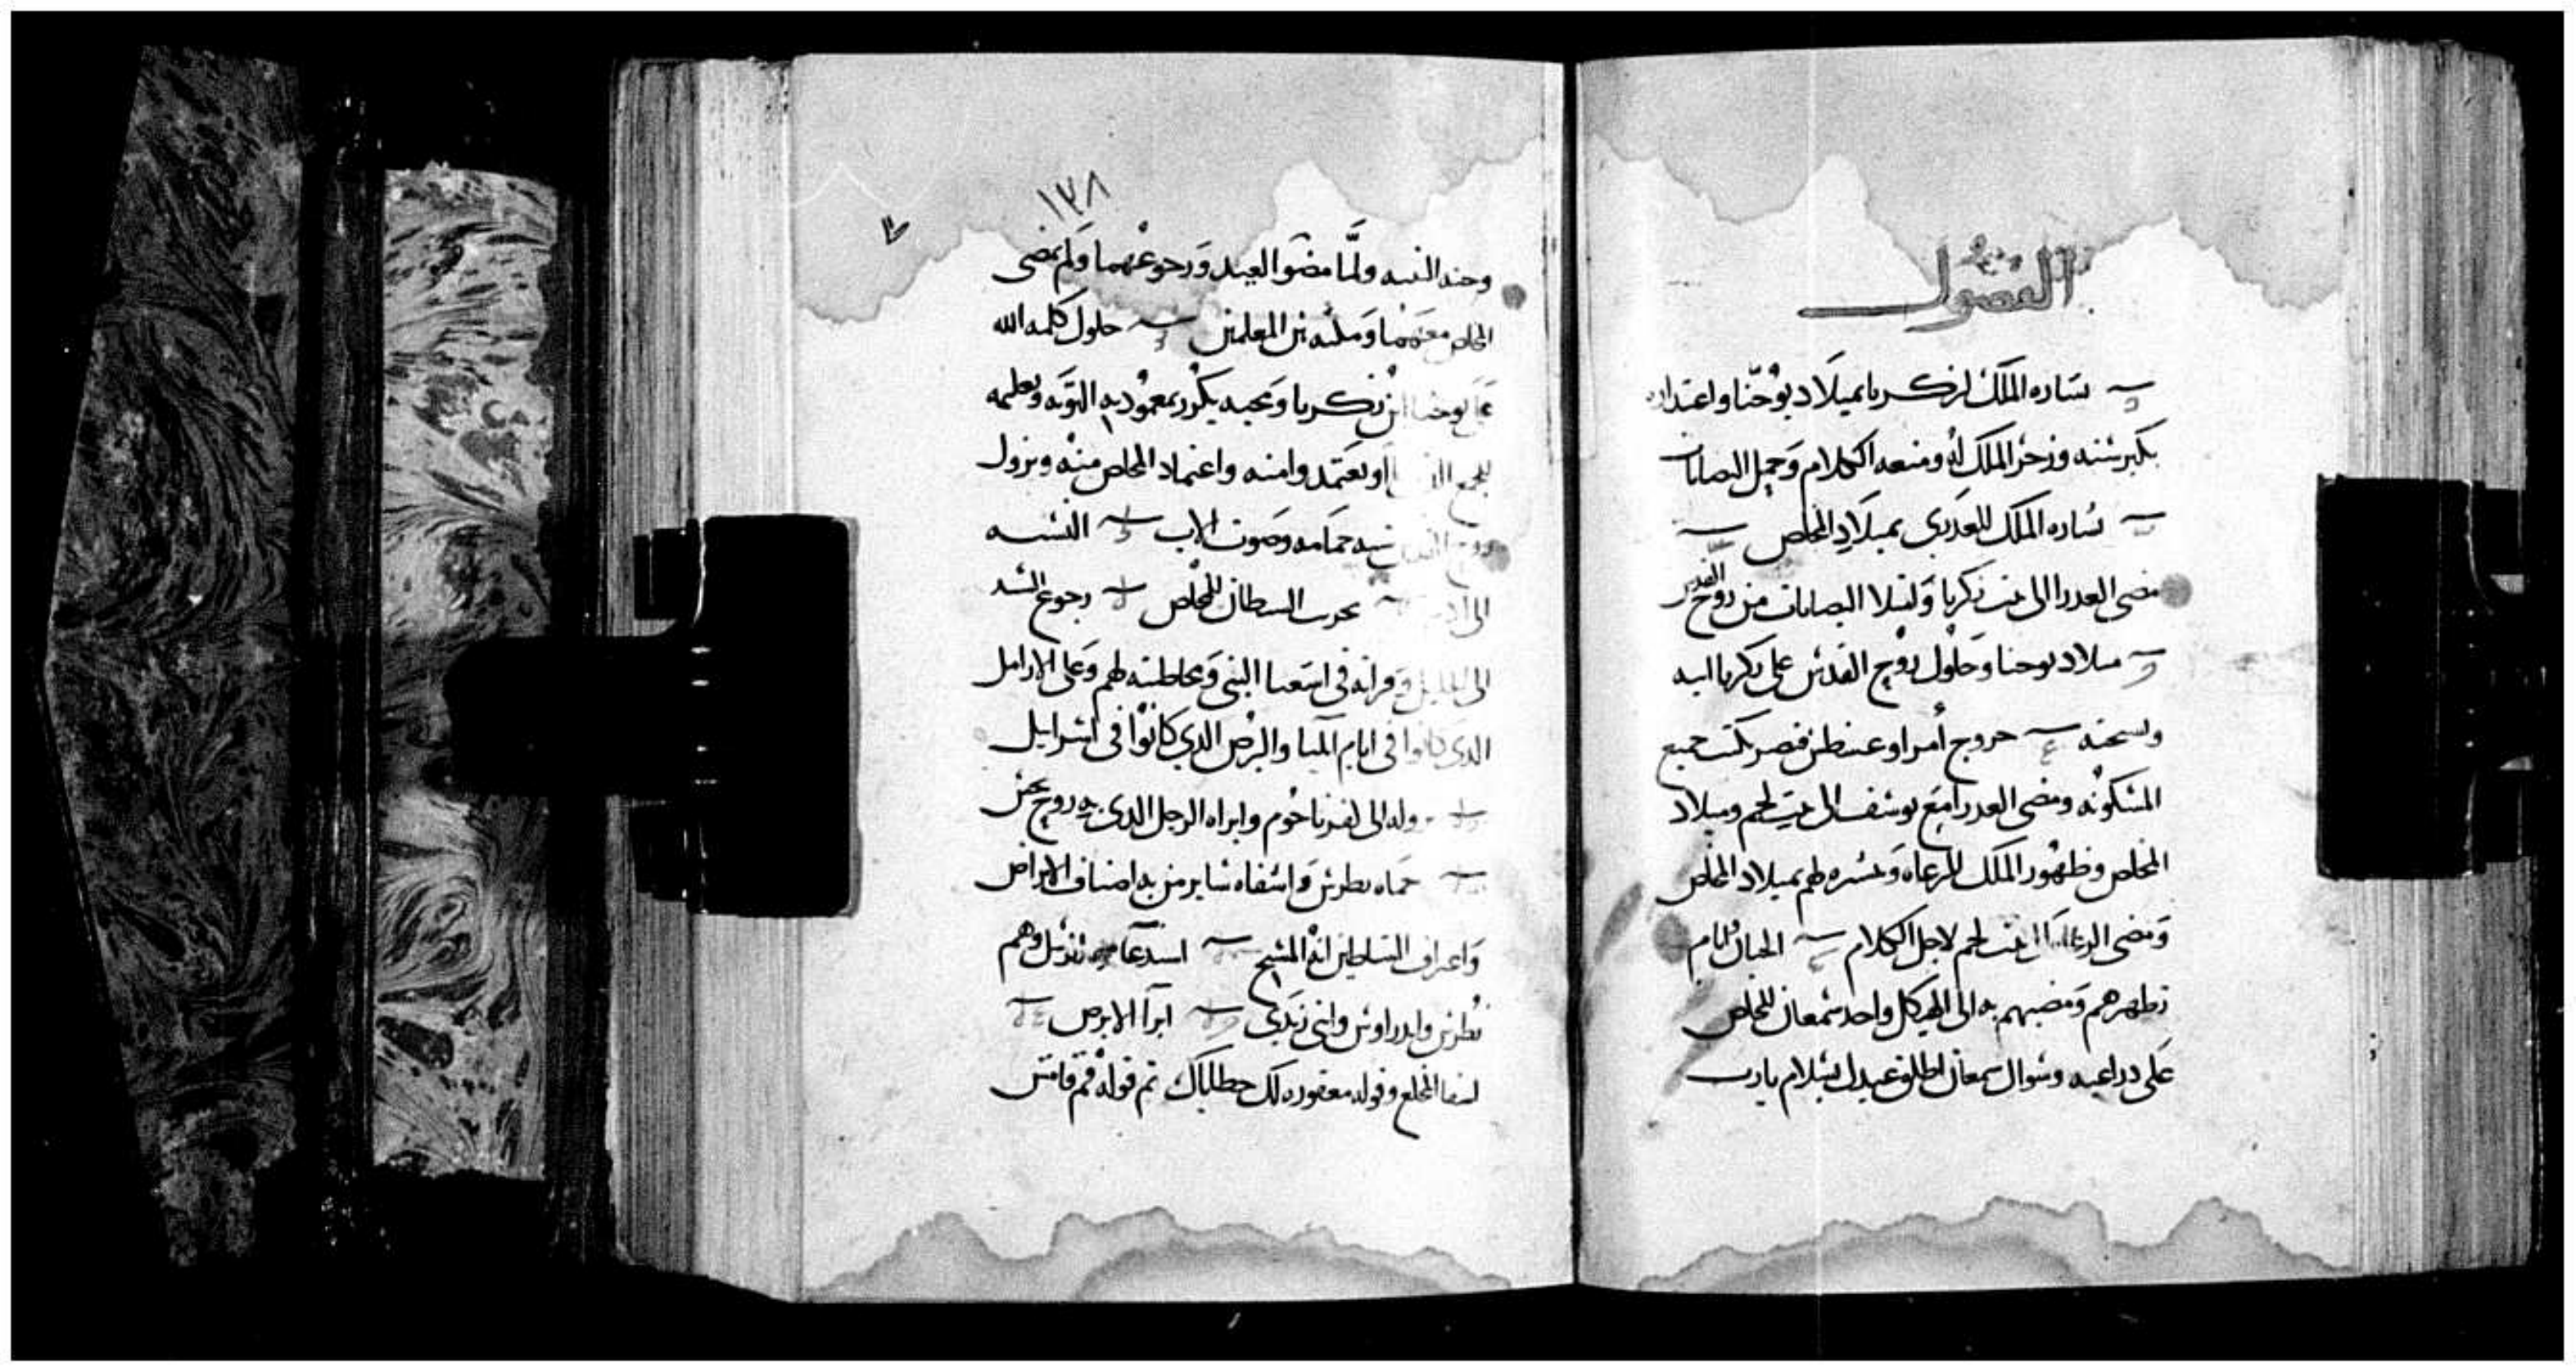 الفصول
بشاره الملك لزكريا بميلاد يوحنا واعتداره
بكبر سنه وزجر الملك له ومنعه الكلام وحمل اليصابات
بشاره الملك للعدرى بميلاد المخلص
مضى العدرا الى بيت زكريا وامتلا اليصابات من روح القدس
ميلاد يوحنا وحلول روح القدس على زكريا ابيه
خروج أمر اوغسطس قيصر بكتب جميع
المسكونه ومضى العدرا مع يوسف الى بيت لحم وميلاد
المخلص وظهور الملك للرعاه وبشره لهم بميلاد المخلص
ومضى الرعاه الى بيت لحم لاجل الكلام الختان وايام
تطهيرهم ومضيهم به الى الهيكل واخد سمعان للمخلص
على دراعيه وسوال سمعان اطلق عبدك بسلام يارب
١٣٨
وحنه النبيه ولما مضوا العيد ورجوعهما ولم يمضى
المخلص معهما وجلسه بين المعلمين حلول كلمه الله
على يوحنا ابن زكريا بمعموديه التوبه وتعليمه
واعتماد المخلص منه ونزول
روح القدس شبه حمامه وصوت الاب النسبه
الى ادم تجربت الشيطان للمخلص رجوع السيد
الى الجليل وقرانه فى اشعيا النبى ومخاطبته لهم وعلى الارامل
الدى كانوا فى ايام ايليا والبرص الدي كانوا فى اسراييل
الى كفرناحوم وابراه الرجل الدى به روح نجس
حماه بطرس واشفاه ساير من به اصناف الامراض
واعتراف الشياطين انه المسيح اسدعا وهم
بطرس واندراوس وابنى زبدى ابرآ الابرص
المخلع وقوله مغفوره لك خطاياك ثم قوله قم فامش